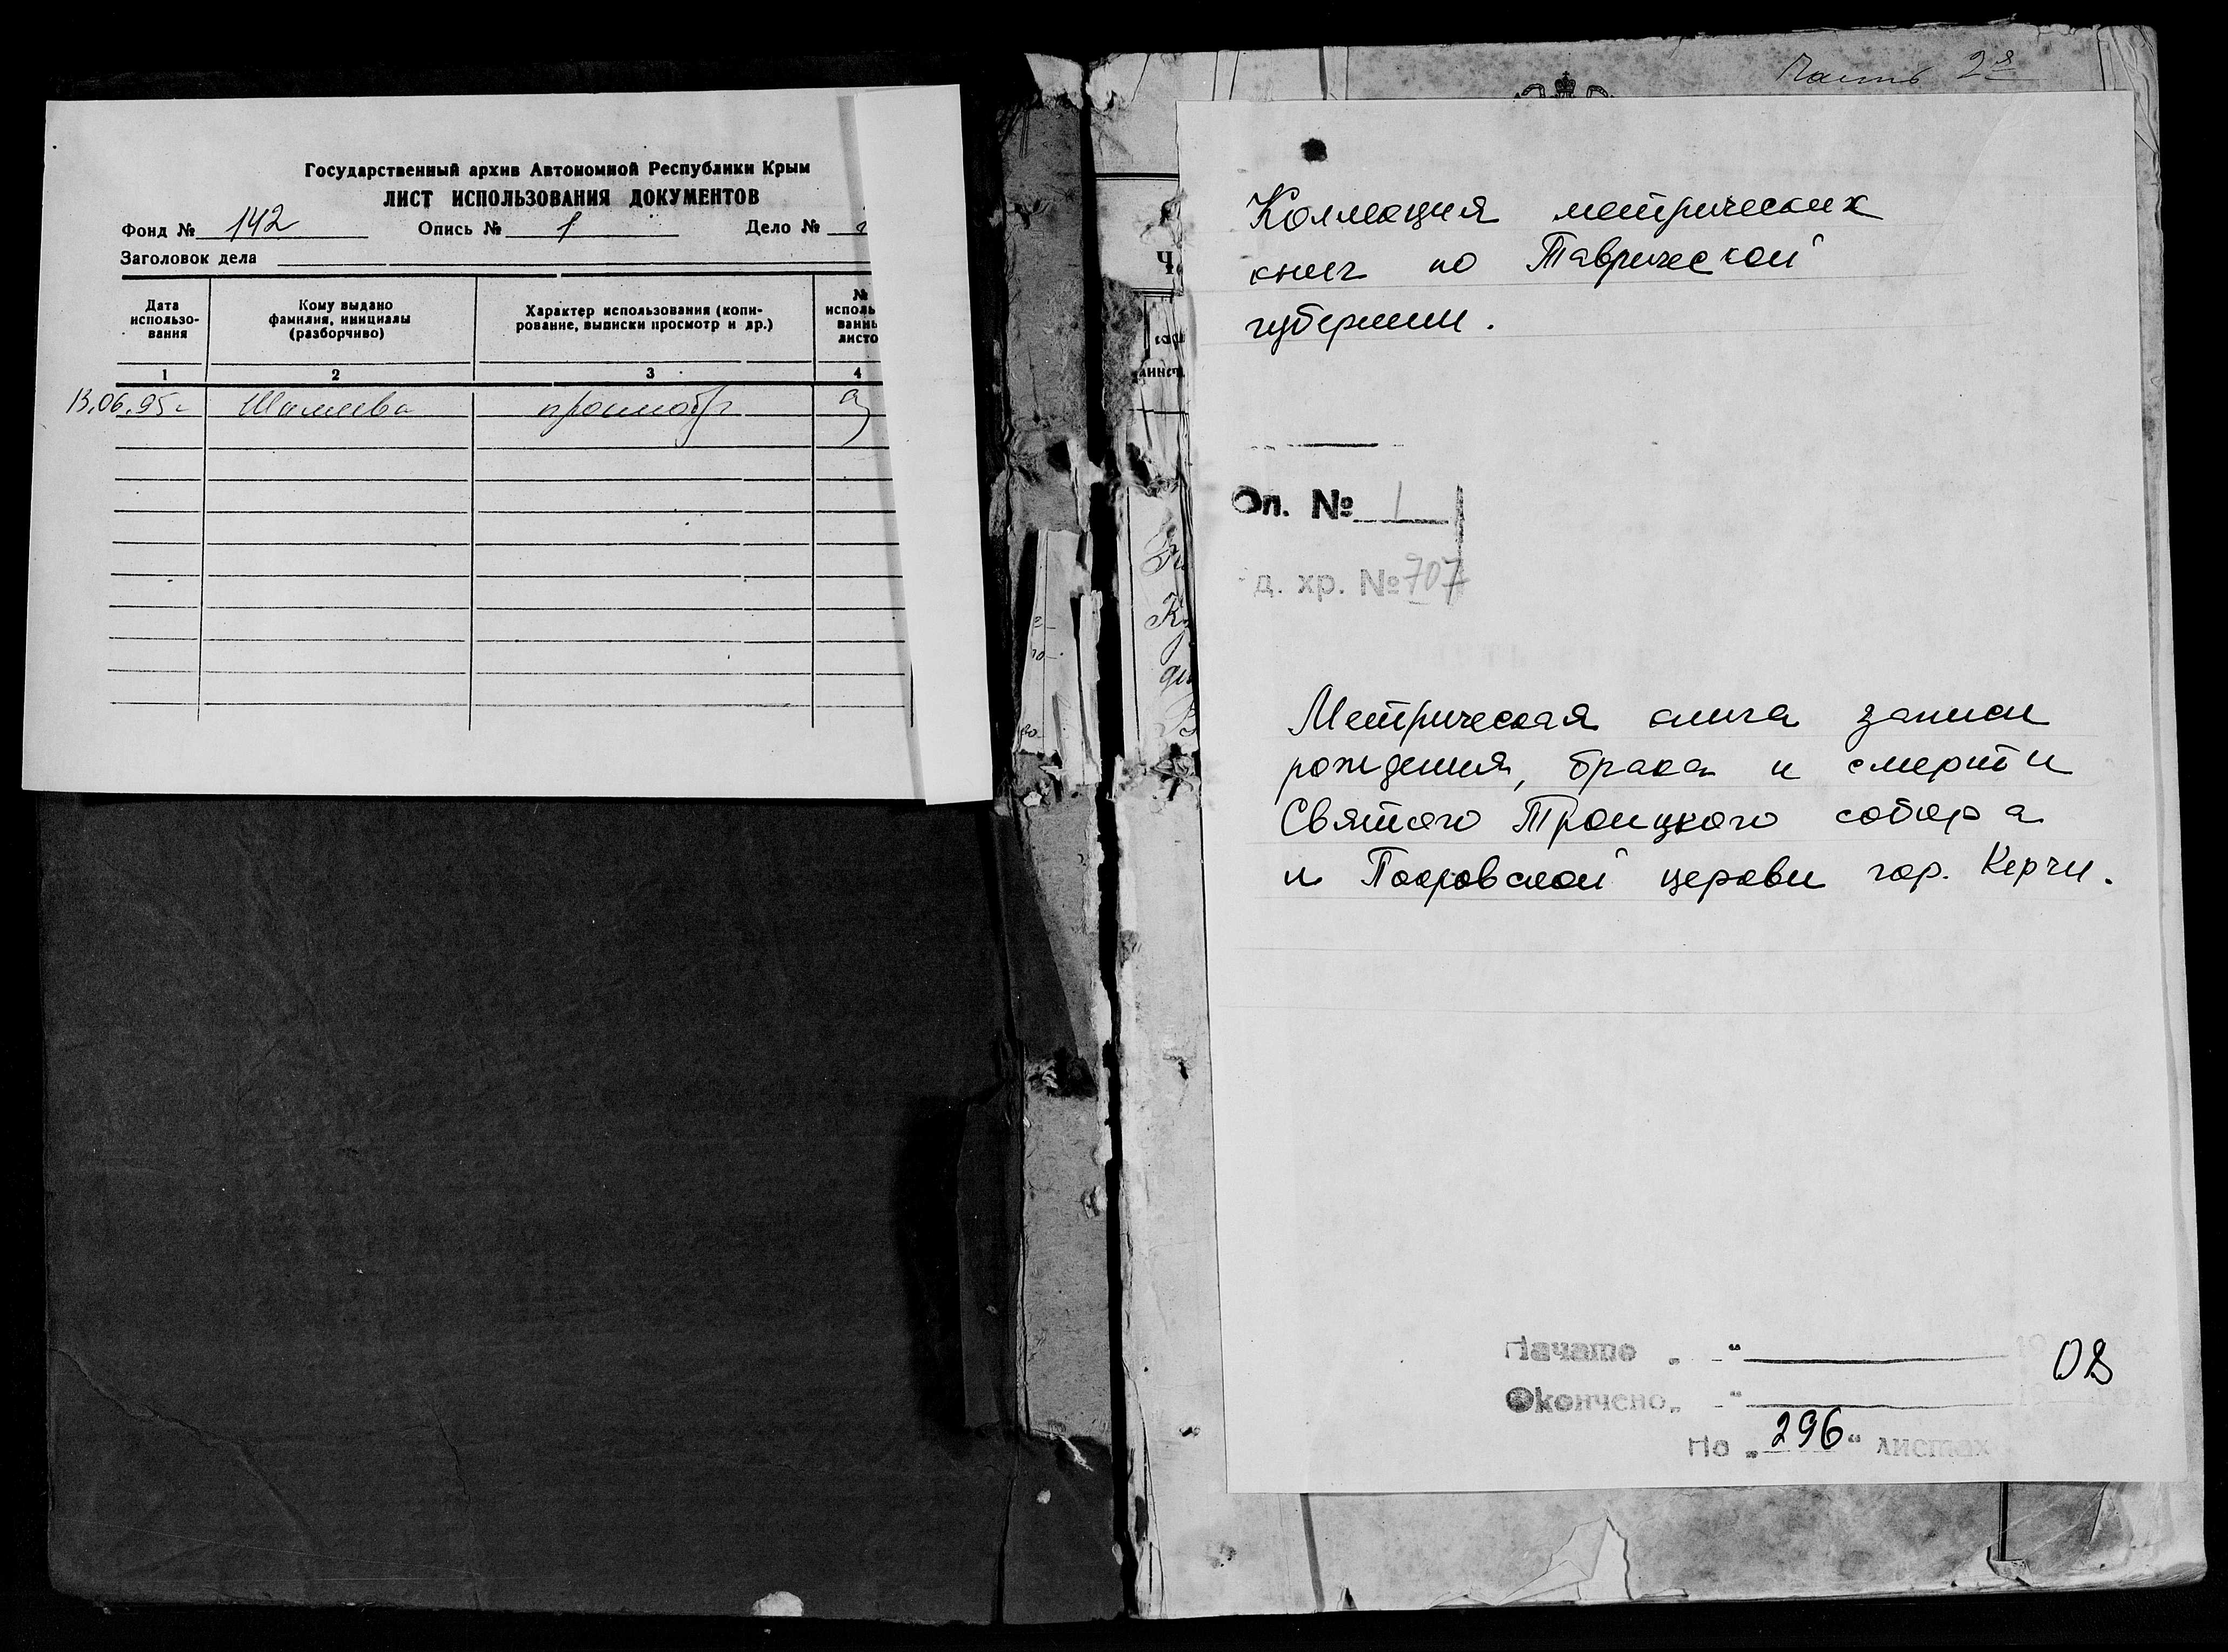 Государственный архив Автономной Республики Крым
ЛИСТ ИСПОЛЬЗОВАНИЯ ДОКУМЕНТОВ
Фонд № 142 Опись № 1 Дело №
Заголовок дела
Дата использо-вания
Кому выдано фамилия, инициалы (разборчиво)
Характер использования (копи-рование, выписки просмотр и др.)
№
1 2 3 4
13.06.95г
Часть 2я
Коллекция метрических
книг по Таврической
губернии.
Оп. № 1
д. хр. № 707
Метрическая книга записи
рождения, брака и смерти
Святого Троицкого собора
и Покровской церкви гор. Керчи.
Начато „ “
Окончено „ “
На „296“ листах